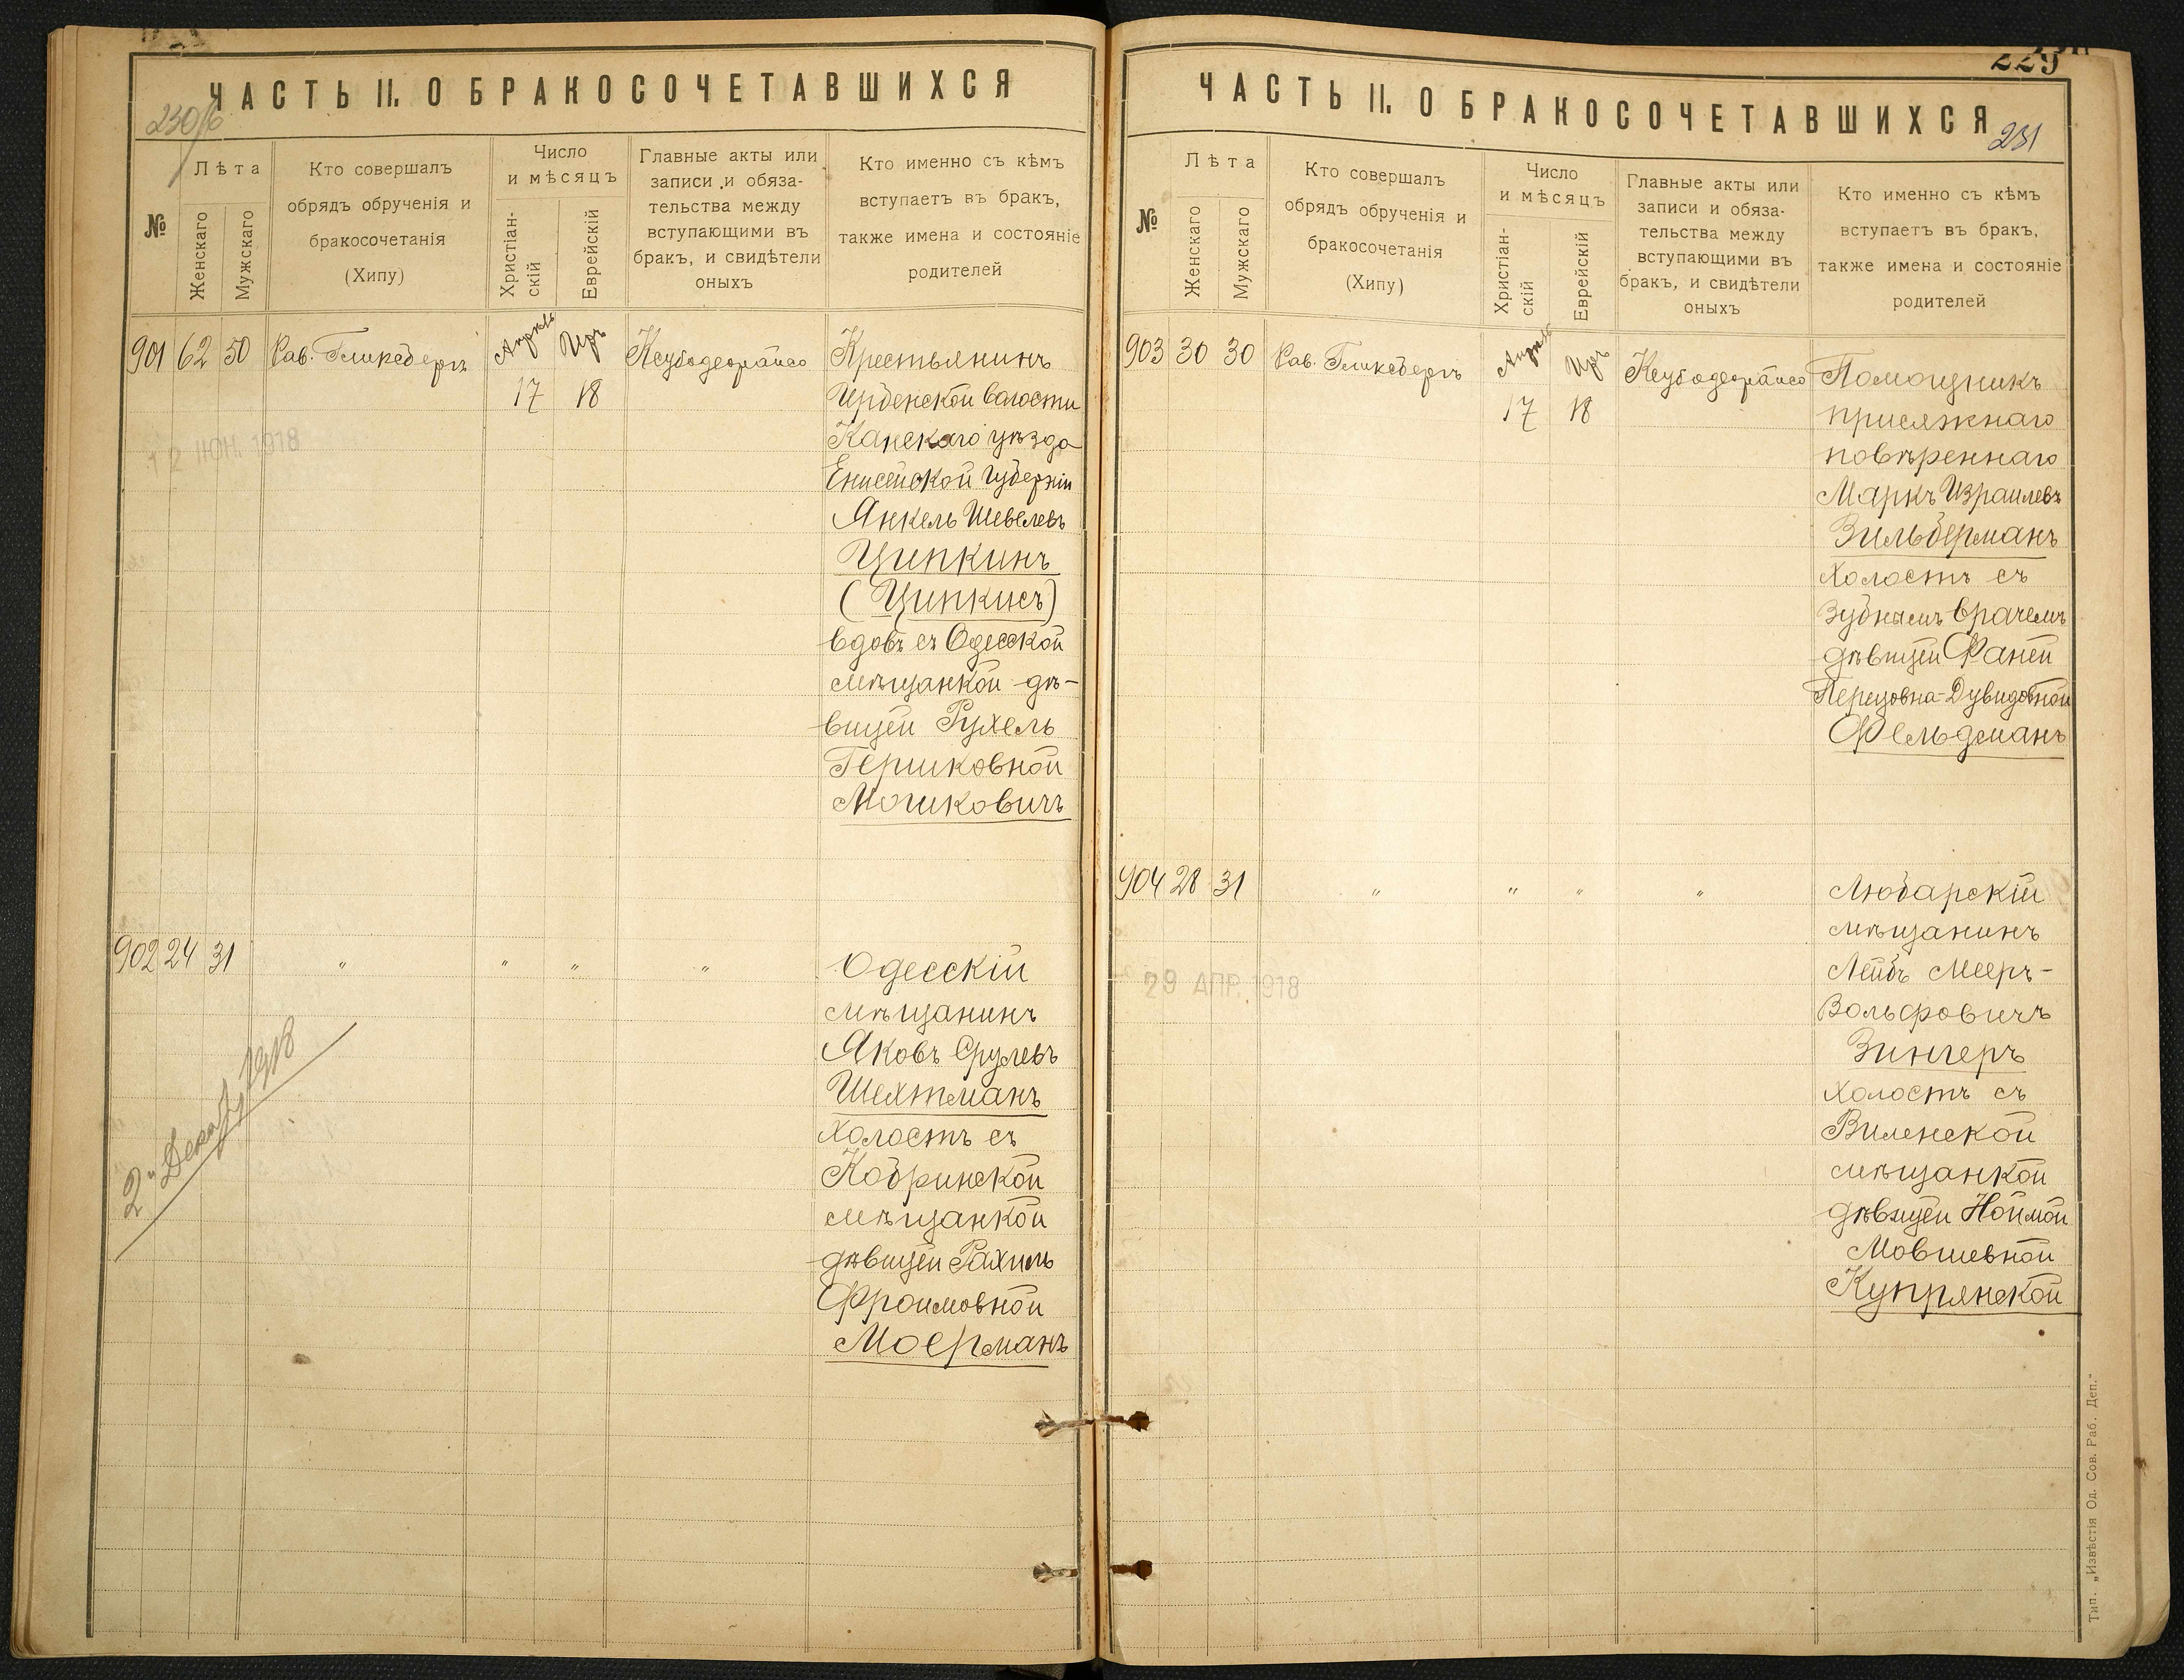 ЧАСТЬ II. О БРАКОСОЧЕТАВШИХСЯ
230/б
№
Лѣта
Женскаго
Мужскаго
Кто совершалъ
обрядъ обрученія и
бракосочетанія
(Хипу)
Число
и мѣсяцъ
Христіан-
скій
Еврейскій
Главные акты или
записи и обяза-
тельства между
вступающими въ
бракъ, и свидѣтели
оныхъ
Кто именно съ кѣмъ
вступаетъ въ бракъ,
также имена и состояніе
родителей
901 62 50 Рав. Гликсбергъ Апрель Иръ
17 18
Крестьянинъ
Ирбенской волости
Канскаго уѣзда
Енисейской Губерніи
Янкель Шевелевъ
Ципкинъ
(Ципкисъ)
вдовъ съ Одесской
мѣщанкой дѣ-
вицей Рухель
Гершковной
Мошковичъ
12 ИЮН. 1918
902 24 31 " " " "
Одесскій
мѣщанинъ
Яковъ Срулевъ
Шехтманъ
холостъ съ
Кобринской
мѣщанкой
дѣвицей Рахиль
Фроимовной
Моерманъ
1918
ЧАСТЬ II. О БРАКОСОЧЕТАВШИХСЯ
229
231
№
Лѣта
Женскаго
Мужскаго
Кто совершалъ
обрядъ обрученія и
бракосочетанія
(Хипу)
Число
и мѣсяцъ
Христіан-
скій
Еврейскій
Главные акты или
записи и обяза-
тельства между
вступающими въ
бракъ, и свидѣтели
оныхъ
Кто именно съ кѣмъ
вступаетъ въ бракъ,
также имена и состояніе
родителей
903 30 30 Рав. Гликсбергъ Апрель Иръ
17 18
Помощникъ
присяжнаго
повѣреннаго
Маркъ Израилевъ
Зильберманъ
холостъ съ
Зубнымъ врачемъ
дѣвицей Фаней
Перецовна-Дувидовной
Фельдманъ
904 28 31 " " " "
Любарскій
мѣщанинъ
Лейбъ Мееръ-
Вольфовичъ
Зингеръ
холостъ съ
Виленской
мѣщанкой
дѣвицей Ноймой
Мовшевной
Купрянской
29 АПР. 1918
Тип. „Извѣстія Од. Сов. Раб. Деп."